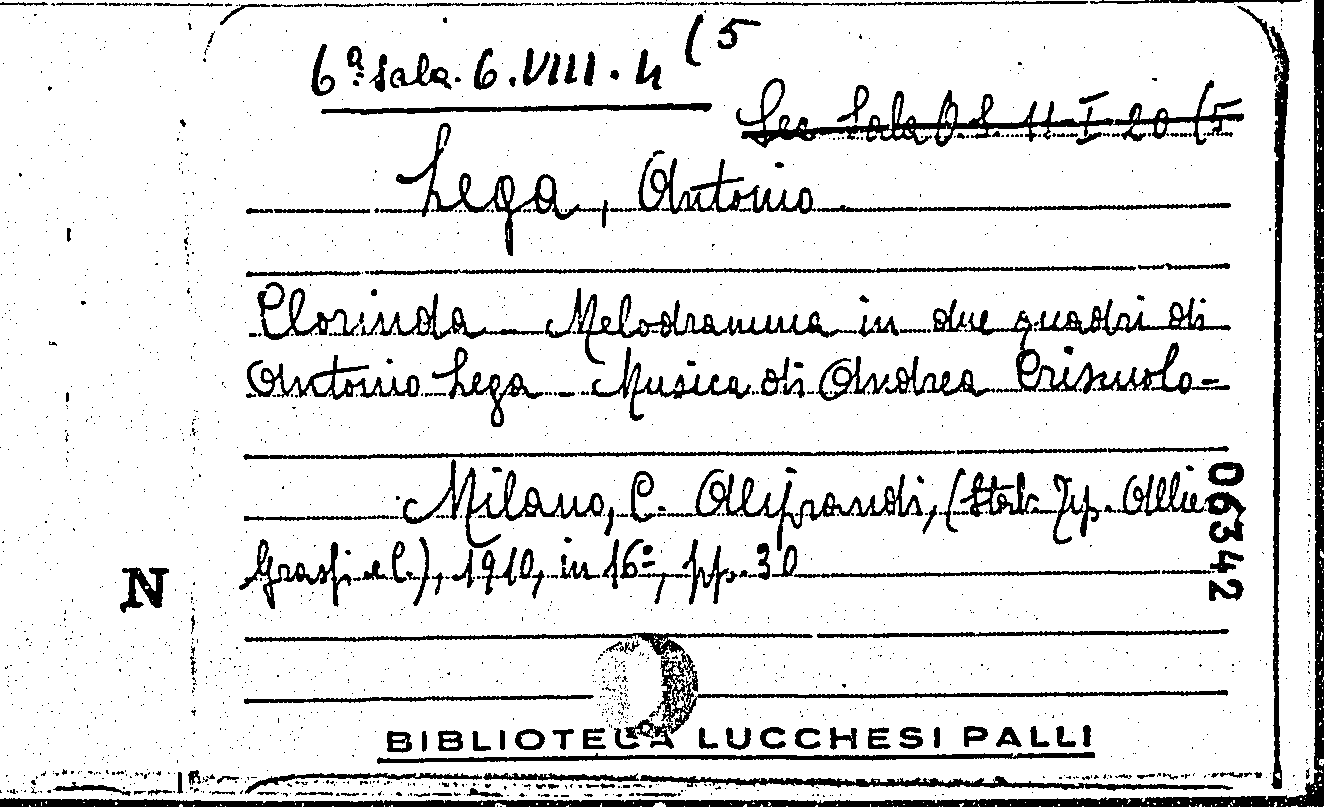 6ª Sala. 6.VIII.4 (5
Sec Sala O.S. 11-I-20 (5
Lega, Antonio.
Clorinda - Melodramma in due quadri di
Antonio Lega - Musica di Andrea Criscuolo -
Milano, C. Aliprandi, (Stab. Tip.
Grassi e C.), 1910, in 16º, pp. 30
06342
N
BIBLIOTECA LUCCHESI PALLI